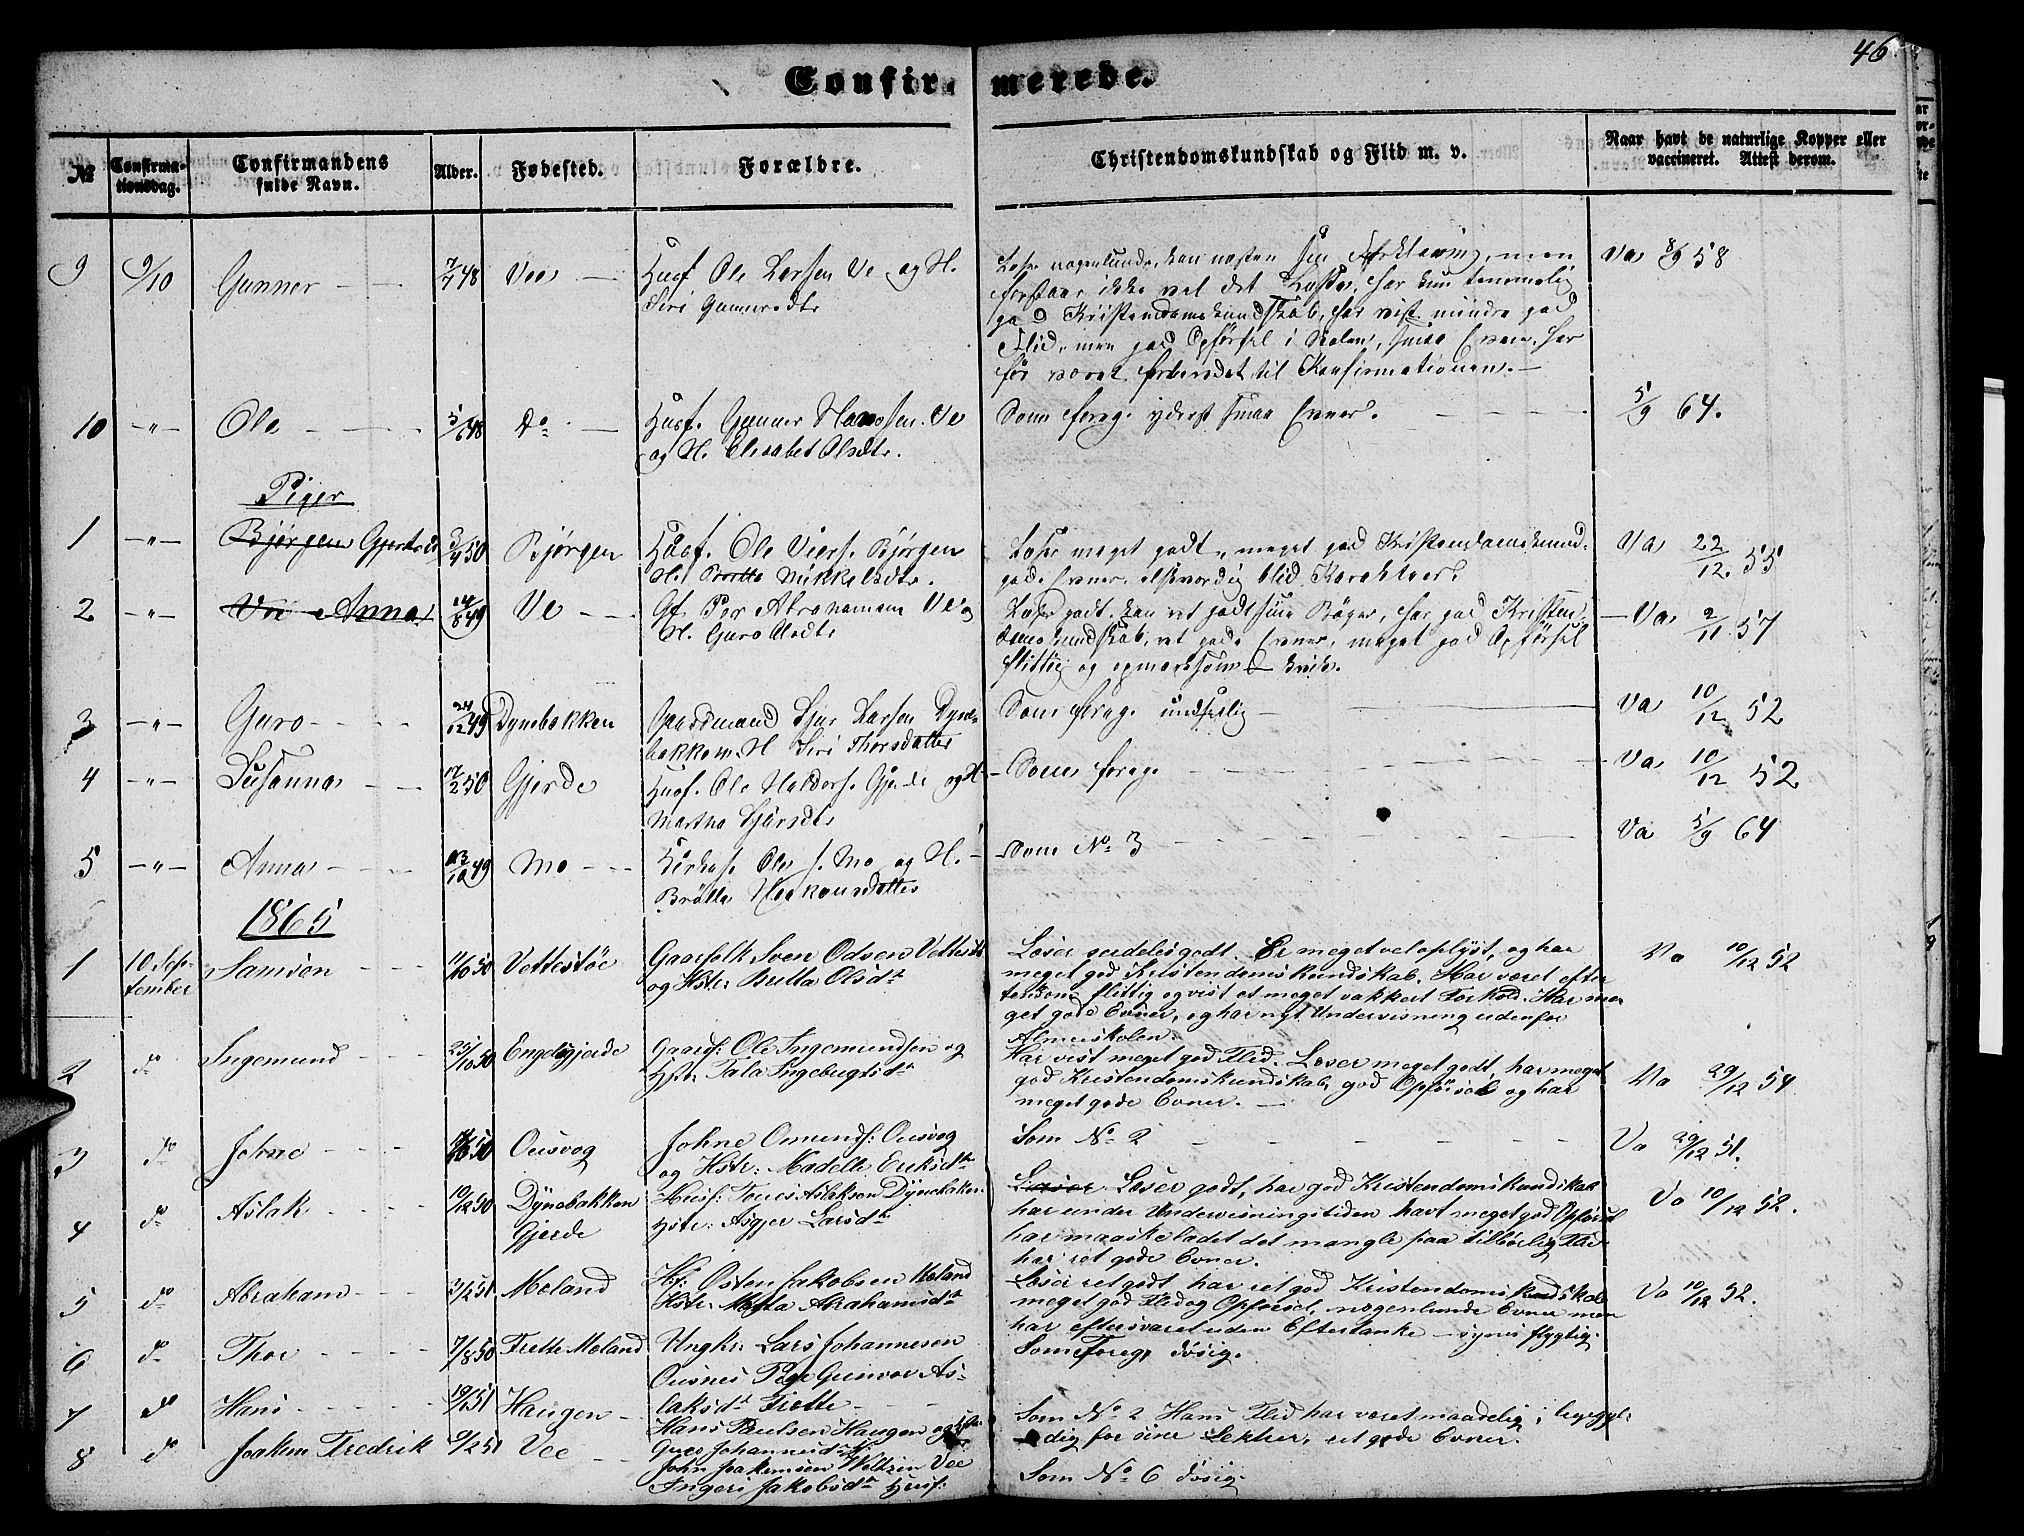 46
Confirmerede.
№ Confirmationsdag. Confirmandens fulde Navn. Alder. Fødested. Forældre. Christendomskundskab og Flid m. v. Naar havt de naturlige Kopper eller vaccineret. Attest derom.
9 9/10 Gunner 7/7 48 Vee Husf Ole Larsen Ve og H. Siri Gunnersdtr
Læser nogenlunde, kan næsten sin Forklaring, men
forstaar ikke vel det Læste, har kun temmelig
god Kristendomskundskab, har vist mindre god
Flid, men god Opførsel i Skolen, smaa Evner, har
før været forberedet til Konfirmationen.
Va 8/9 58
10 -"- Ole 5/6 48 Do Husf. Gunner Hansen Ve
og H. Elisabet Olsdtr.
Som forrg. yderst smaa Evner. 5/9 64.
Piger
1 -"- Bjørgen Gjertrud 3/4 50 Bjørgen Husf. Ole Viers. Bjørgen
H. Brotto Mikkelsdtr.
Læser meget godt, meget god Kristendomskund-
gode Evner, elskværdig blid Karakteer.
Va 22/12. 55
2 -"- Ve Anna 14/8 49 Ve Gf. Per Abrahamsen Ve og
H. Guro Olsdtr
Læser godt, kan ret godt sine Bøger, har god Kristen-
domskundskab, ret gode Evner, meget god Opførsel
flittig og opmærksom kvik.
Va 2/11. 57
3 -"- Guro 24/12 49 Dynebakken Gaardmand Sjur Larsen Dyne-
bakken. H Siri Thorsdatter
Som forrg. undseelig Va 10/12 52
4 -"- Susanna 17/2 50 Gjerde Husf. Ole Haldors. Gjerde og H.
Martha Sjursdtr
Som forrg. Va 10/12 52
5 -"- Anna 13/10 49 Mo Ole s. Mo og H.
Brotta Haakonsdatter
Som No 3 Va 5/9 64
1865
1 10. September Samson 11/10 50 Vettestøe Gaarfolk Sven Odsen Vettestø
og Hstr: Britta Olsdtr
Læser serdelesgodt. Er meget vel oplyst, og har
meget god Kristendomskundskab. Har været efter
tenksom, flittig og vist et meget vakkert Forhold. Har me
get gode Evner, og har nyt Undervisning udenfor
Almueskolen.
Va 10/12 52
2 do Ingemund 25/10 50 Engelsgjerde Gaardf: Ole Ingemundsen og
Hstr: Pala Ingebrigtsdtr
Har vist meget god Flid. Læser meget godt, har meget
god Kristendomskundskab, god Opførsel og har
meget gode Evner.
Va 29/12 54
3 do Johne 50 Ousvog Johne Omundf: Ousvog
og Hstr: Madelle Eriksdtr
Som No 2 Va 29/12 51.
4 do Aslak 10/12 50 Dynebakken Gjerde Husf: Tønes Aslaksen Dynebaken
Hstr: Asgjer Larsdtr
Læser Læser godt, har god Kristendomskundskab
har under Undervisningstiden havt meget god Opførsel
har maaske ladet det mangle paa tilbørlig Flid
har ret gode Evner.
Va 10/12 52.
5 do Abraham 3/2 51 Moland Hf: Østen Jakobsen Moland
Hstr: Marta Abrahamsdtr
Læser ret godt, har ret god Kristendomskundskab
meget god Flid og Opførsel, nogenlunde Evner men
har eftersvaret uden Eftertanke – synes flygtig.
Va 10/12 52.
6 do Thor 7/8 50 Frette Moland Ungkr: Lars Johannesen
Ousnes Pige Gunvor As-
laksdtr Frette
Som Foreg. døsig.
7 do Hans 19/1 51 Haugen Hans Paulsen Haugen og Hstr.
Guro Johannesdtr
Som No 2 Hans Flid har været maadelig; ligegyl-
dig for sine Lekser, ret gode Evner.
8 do Joakim Fredrik 9/2 51 Vee John Joakimsen Weltzin Vee
Ingeri Jakobsdtr Husf:
Som No 6 døsig.